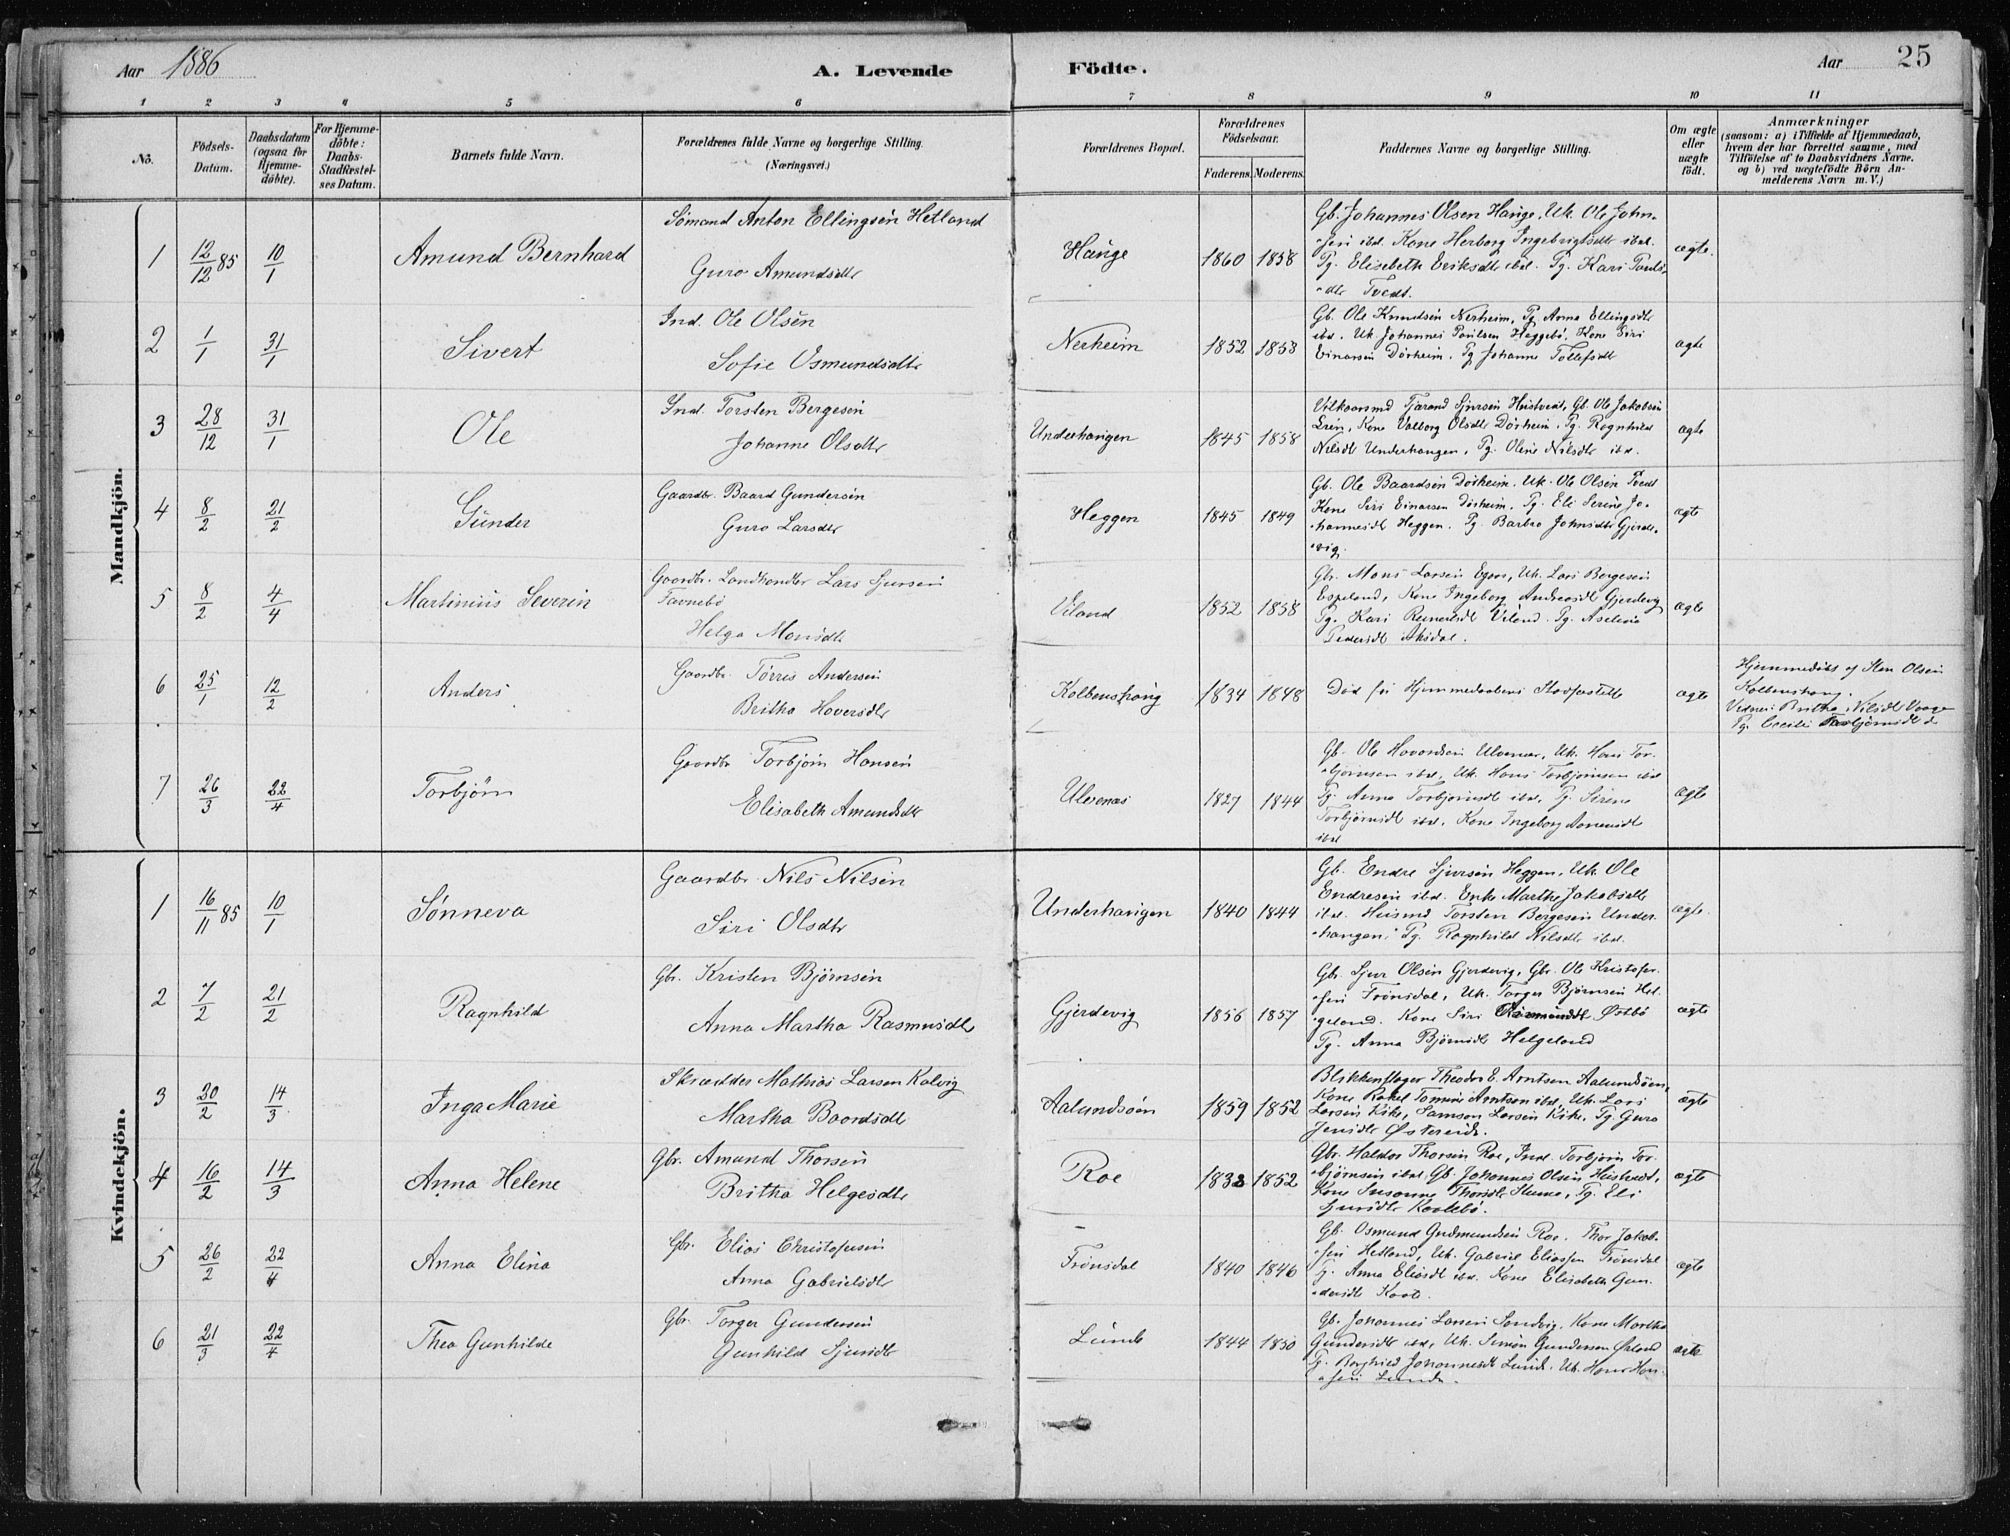 Aar 1886
A. Levende Födte.
Aar 25
1 2 3 4 5 6 7 8 9 10 11
No.
Födsels-Datum.
Daabsdatum (ogsaa for Hjemme-döbte).
For Hjemme-döbte: Daabs-Stadfæstel-ses Datum.
Barnets fulde Navn.
Forældrenes fulde Navne og borgerlige Stilling. (Næringsvei.)
Forældrenes Bopæl.
Forældrenes Födselsaar.
Faderens. Moderens.
Faddernes Navne og borgerlige Stilling.
Om ægte eller uægte födt.
Anmærkninger
(saasom: a) i Tilfælde af Hjemmedaab, hvem der har forrettet samme, med Tilföielse af to Daabsvidners Navne. og b) ved uægtefödte Börn An-melderens Navn m. V.)
Mandkjön.
1 12/12 85 10/1 Amund Bernhard
Sømand Anton Ellingsen Hetland
Guro Amundsdtr
Hauge 1860 1858
Gb. Johannes Olsen Hauge, Uk. Ole John-
sen ibd. Kone Herborg Ingebrigtsdtr ibd.
Pg. Elisebeth Eriksdtr ibd. Pg. Kari Pouls-
dtr Tvedt.
ægte.
2 1/1 31/1 Sivert
Ind. Ole Olsen
Sofie Osmundsdtr
Nerheim 1852 1853
Gb. Ole Knudsen Nerheim, Pg Anna Ellingsdtr
ibd. Uk Johannes Poulsen Heggebø, Kone Siri
Einarsen Dörheim. Pg Johanne Tollefsdt
ægte
3 28/12 31/1 Ole
Ind. Torsten Bergesen
Johanne Olsdtr
Underhaugen 1845 1858
Vilkaarsmd Tjærand Sjursen Heistvedt, Gb. Ole Jakobsen
Kone Valborg Olsdtr Dörheim, Pg. Ragnhild
Nilsdt Underhaugen, Pg. Oline Nilsdtr ibd.
ægte
4 8/2 21/2 Gunder
Gaardbr. Baard Gundersen
Guro Larsdtr
Heggen 1845 1849
Gb. Ole Baardsen Dörheim. Uk. Ole Olsen Tvedt
Kone Siri Einarsen Dörheim. Pg. Eli Serine Jo-
hannesdt Heggen. Pg. Barbro Johnsdtr Gjerde-
vig.
ægte
5 8/2 4/4 Martinius Severin
Gaardbr. Landhandler Lars Sjursen
Favnebø
Helga Monsdtr
Viland 1852 1858
Gbr. Mons Larsen Egaas, Uk. Lars Bergesen
Espeland, Kone Ingeborg Andreasdt Gjerdevig
Pg. Kari Reinertsdt Viland. Pg. Aselene
Pedersdt Aksdal.
ægte
6 25/1 12/2 Anders
Gaardbr. Törris Andersen
Britha Hoversdtr
Kolbenshaug 1834 1848
Död før Hjemmedaabens Stadfæstelse
ægte
Hjemmedøbt af Sten Olsen
Kolbenshaug.
Vidner: Britha Nilsdt Vaage
Pg. Cecilie Torbjörnsdt
7 26/3 22/4 Torbjørn
Gaardbr Torbjørn Hansen
Elisabeth Amundsdtr
Ulvenæs 1827 1844
Gb. Ole Hovordsen Ulvenæs, Uk. Hans Tor-
bjørnsen ibd, Uk. Hans Torbjørnsen ibd
Pg. Anna Torbjörnsdt ibd, Pg. Sirene
Torbjørnsdt ibd. Kone Ingeborg Aanensdt
ibd
ægte
Kvindekjön.
1 16/11 85 10/1 Sønneva
Gaardbr. Nils Nilsen
Siri Olsdtr
Underhaugen 1840 1844
Gb. Endre Sjursen Heggen, Uk. Ole
Endresen ibd. Enke Marthe Jakobsdtr
ibd. Huusmd Torsten Bergesen Under-
haugen, Pg. Ragnhild Nilsdtr ibd.
ægte.
2 7/2 21/2 Ragnhild
Gbr. Kristen Bjørnsen
Anna Martha Rasmusdtr
Gjerdevig 1856 1857
Gbr. Sjur Olsen Gjerdevig, Gbr. Ole Kristofer-
sen Frönsdal, Uk. Torger Björnsen Hel-
geland. Kone Siri Østbø
Pg. Anna Björnsdtr Helgeland
ægte
3 20/2 14/3 Inga Marie
Skrædder Mathias Larsen Kalvig
Martha Baardsdtr
Aalundsöen 1859 1852
Blikkenslager Theodor E. Arntsen Aalundsöen,
Kone Rakel Tomine Arntsen ibd, Uk. Lars
Larsen Kike, Samson Larsen Kike, Pg. Guro
Jensdtr Østereide.
ægte
4 16/2 14/3 Anna Helene
Gbr. Amund Thorsen
Britha Helgesdtr
Roe 1838 1852
Gbr. Haldor Thorsen Roe, Ind. Torbjörn Tor-
bjørnsen ibd. Gb. Johannes Olsen Heistvedt,
Kone Susanne Thorsdtr Pg. Eli
Sjursdtr
ægte
5 26/2 22/4 Anna Elina
Gbr. Elias Christofersen
Anna Gabrielsdtr
Frönsdal 1840 1846
Gb. Osmund Gudmundsen Roe. Thor Jakob-
sen Hetland, Uk. Gabriel Eliassen Frönsdal
Pg. Anna Eliasdt ibd. Kone Elisabeth Gun-
dersdt
ægte
6 21/3 22/4 Thea Gunhilde
Gbr. Torger Gundersen
Gunhild Sjursdtr
Lunde 1844 1850
Gb. Johannes Larsen Sandvig, Kone Martha
Gundersdt ibd, Uk. Simon Gundersen Øvland
Pg. Borghild Johannesdt Lunde. Uk. Hans Han-
sen Lunde.
ægte